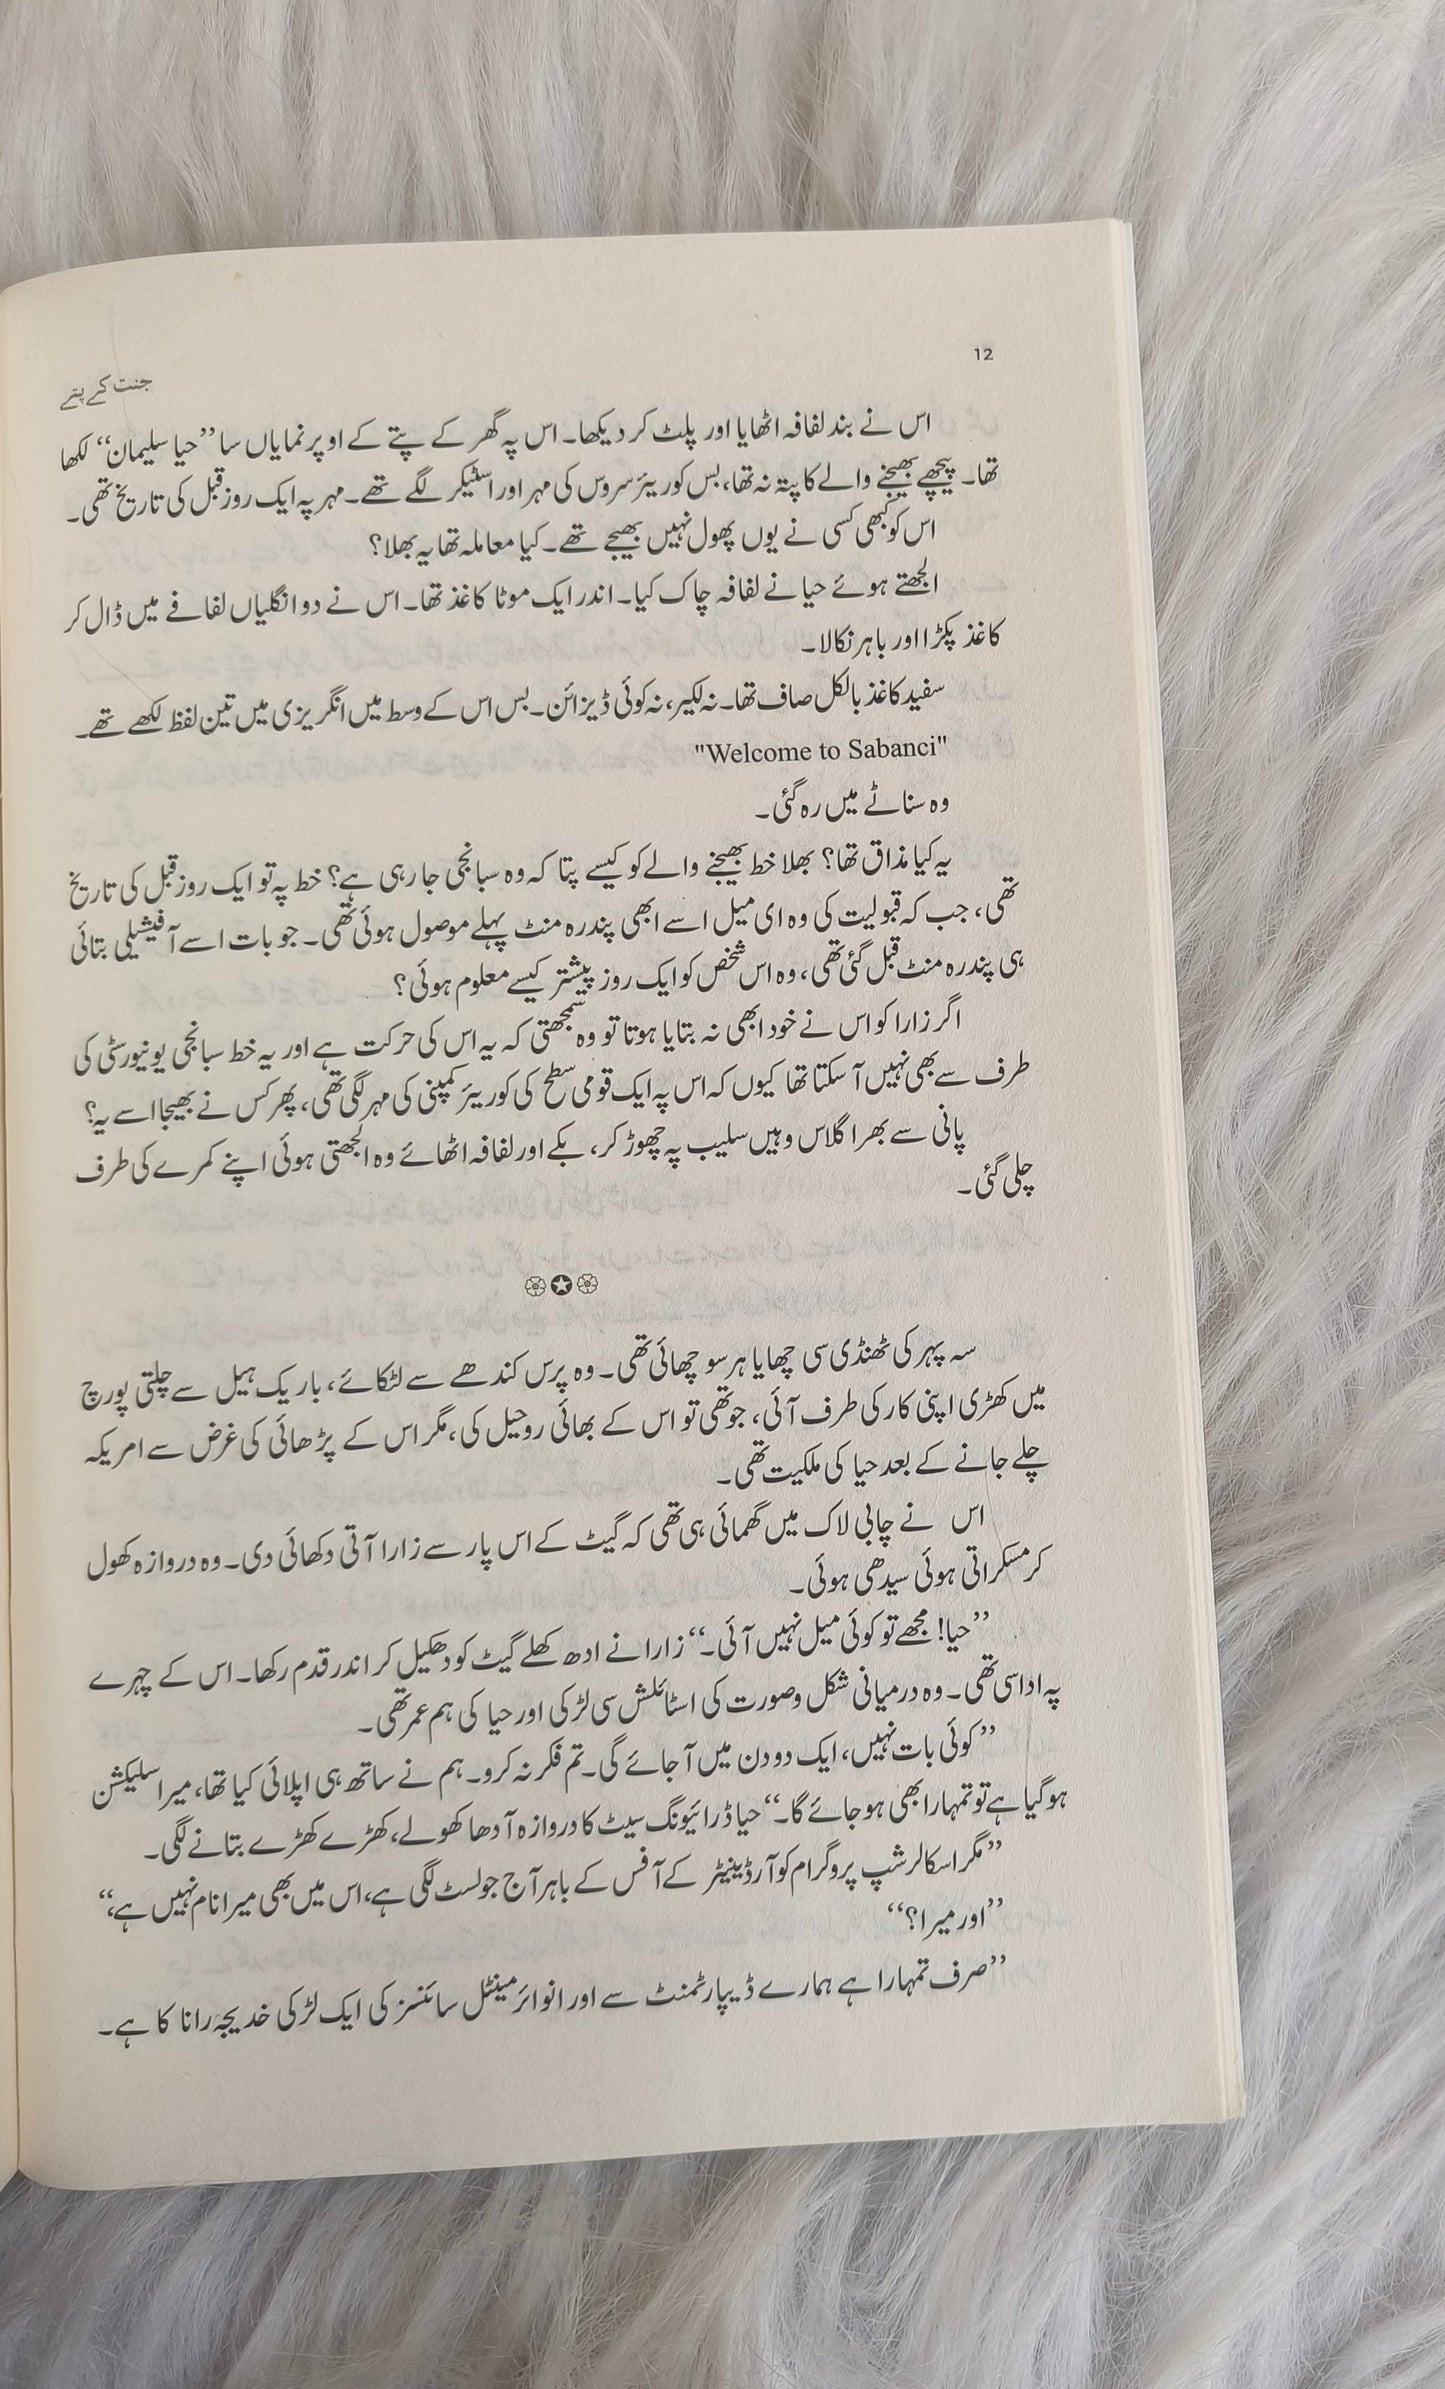 12
جنت کے پتے
اس نے بند لفافہ اٹھایا اور پلٹ کر دیکھا۔ اس پہ گھر کے پتے کے اوپر نمایاں سا ’’حیا سلیمان‘‘ لکھا
تھا۔ پیچھے بھیجنے والے کا پتہ نہ تھا، بس کوریئر سروس کی مہر اور اسٹیکر لگے تھے۔ مہر پہ ایک روز قبل کی تاریخ تھی۔
اس کو کبھی کسی نے یوں پھول نہیں بھیجے تھے۔ کیا معاملہ تھا یہ بھلا؟
الجھتے ہوئے حیا نے لفافہ چاک کیا۔ اندر ایک موٹا کاغذ تھا۔ اس نے دو انگلیاں لفافے میں ڈال کر
کاغذ پکڑا اور باہر نکالا۔
سفید کاغذ بالکل صاف تھا۔ نہ لکیر، نہ کوئی ڈیزائن۔ بس اس کے وسط میں انگریزی میں تین لفظ لکھے تھے۔
"Welcome to Sabanci"
وہ سناٹے میں رہ گئی۔
یہ کیا مذاق تھا؟ بھلا خط بھیجنے والے کو کیسے پتا کہ وہ سبانجی جا رہی ہے؟ خط پہ تو ایک روز قبل کی تاریخ
تھی، جب کہ قبولیت کی وہ ای میل اسے ابھی پندرہ منٹ پہلے موصول ہوئی تھی۔ جو بات اسے آفیشلی بتائی
ہی پندرہ منٹ قبل گئی تھی، وہ اس شخص کو ایک روز پیشتر کیسے معلوم ہوئی؟
اگر زارا کو اس نے خود ابھی نہ بتایا ہوتا تو وہ سمجھتی کہ یہ اس کی حرکت ہے اور یہ خط سبانجی یونیورسٹی کی
طرف سے بھی نہیں آ سکتا تھا کیوں کہ اس پہ ایک قومی سطح کی کوریئر کمپنی کی مہر لگی تھی، پھر کس نے بھیجا اسے یہ؟
پانی سے بھرا گلاس وہیں سلیب پہ چھوڑ کر، بکے اور لفافہ اٹھائے وہ الجھتی ہوئی اپنے کمرے کی طرف
چلی گئی۔
سہ پہر کی ٹھنڈی سی چھایا ہر سو چھائی تھی۔ وہ پرس کندھے سے لٹکائے، باریک ہیل سے چلتی پورچ
میں کھڑی اپنی کار کی طرف آئی، جو تھی تو اس کے بھائی روحیل کی، مگر اس کے پڑھائی کی غرض سے امریکہ
چلے جانے کے بعد حیا کی ملکیت تھی۔
اس نے چابی لاک میں گھمائی ہی تھی کہ گیٹ کے اس پار سے زارا آتی دکھائی دی۔ وہ دروازہ کھول
کر مسکراتی ہوئی سیدھی ہوئی۔
’’حیا! مجھے تو کوئی میل نہیں آئی۔‘‘ زارا نے ادھ کھلے گیٹ کو دھکیل کر اندر قدم رکھا۔ اس کے چہرے
پہ اداسی تھی۔ وہ درمیانی شکل و صورت کی اسٹائلش سی لڑکی اور حیا کی ہم عمر تھی۔
’’کوئی بات نہیں، ایک دو دن میں آ جائے گی۔ تم فکر نہ کرو۔ ہم نے ساتھ ہی اپلائی کیا تھا، میرا سلیکشن
ہو گیا ہے تو تمہارا بھی ہو جائے گا۔‘‘ حیا ڈرائیونگ سیٹ کا دروازہ آدھا کھولے، کھڑے کھڑے بتانے لگی۔
’’مگر اسکالرشپ پروگرام کوآرڈینیٹر کے آفس کے باہر آج جو لسٹ لگی ہے، اس میں بھی میرا نام نہیں ہے،‘‘
’’اور میرا؟‘‘
’’صرف تمہارا ہے ہمارے ڈیپارٹمنٹ سے اور انوائرمینٹل سائنسز کی ایک لڑکی خدیجہ رانا کا ہے۔